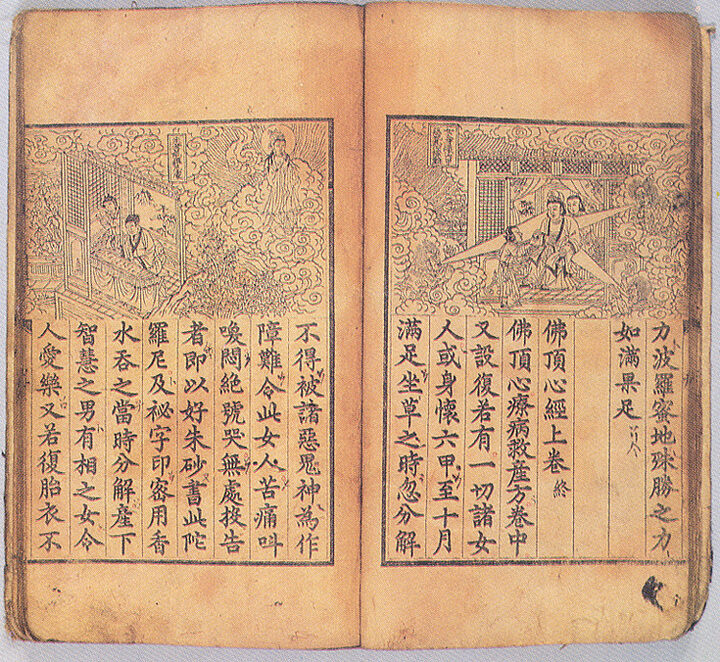 力波羅蜜地殊勝之力
如滿果足
佛頂心經上卷 終
佛頂心療病救産方卷中
又設復若有一切諸女
人或身懷六甲至十月
滿足坐草之時忽分解
不得被諸惡鬼神為作
障難令此女人苦痛叫
喚悶絕號哭無處投告
者即以好朱砂書此陀
羅尼及祕字印密用香
水吞之當時分解産下
智慧之男有相之女令
人愛樂又若復胎衣不